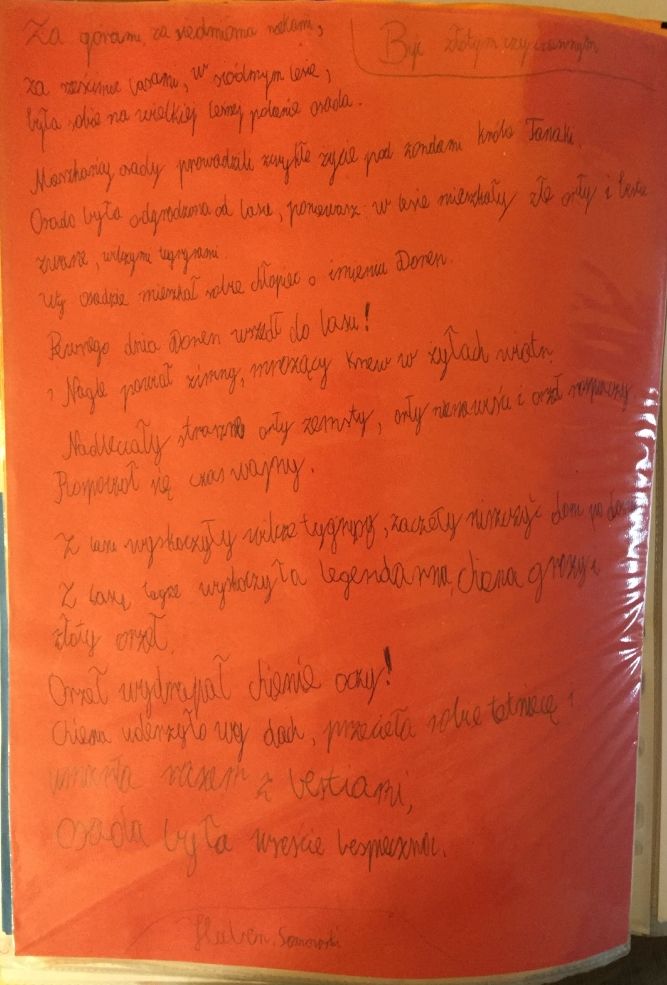 Być złotym czy czerwonym
Za górami, za siedmioma rzekami,
za sześcioma lasami, w siódmym lesie,
była sobie na wielkiej leśnej polanie osada.
Mieszkańcy osady prowadzili zwykłe życie pod żondami króla Tanaki
Osada była odgrodzona od lasu, poniewasz w lesie mieszkały złe orły i bestie
zwane, wilczymi tygrysami.
Wy osadzie mieszkał sobie chłopiec o imieniu Doren.
Pewnego dnia Doren wszedł do lasu!
i Nagle powiał zimny, mrożący krew w żyłach wiatr.
Nadleciały straszne orły zemsty, orły nienawiści i orzeł rozpaczy
Rozpoczoł się czas wojny.
Z lasu wyskoczyły wilcze tygrysy, zaczeły niszczyć dom po domu
Z lasu tagże wyskoczyła legendarna, chiena grozy i
złoty orzeł.
Orzeł wydrapał chienie oczy!
Chiena uderzyła wy dach, przecieła sobie tetnicę i
umarła razem z bestiami,
osada była wreście bespieczna.
Hubert